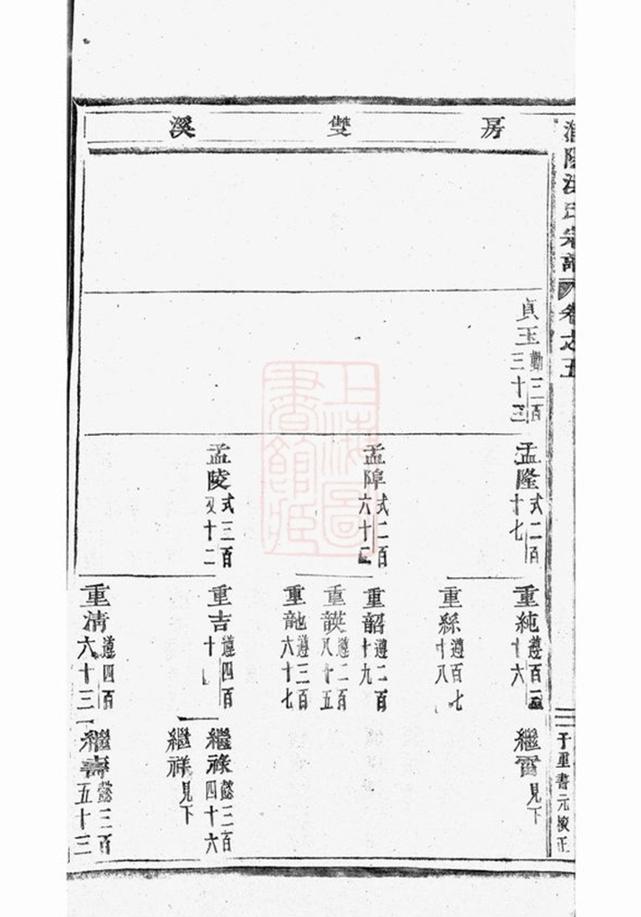 房雙溪
洪氏宗譜 卷之五
貞玉 勤三百三十三
孟隆 式二百十七
孟陞 式二百六十
孟陵 式三百十二
重純 遵百十六
重綵 遵百七十八
重韶 遵二百十九
重 遵二百八十五
重 遵三百六十七
重吉 遵四百十
重清 遵四百六十三
繼雷 見下
繼祿 懿三百四十六
繼祥 見下
繼壽 懿三百五十三
于重書元校正
上海圖書館藏